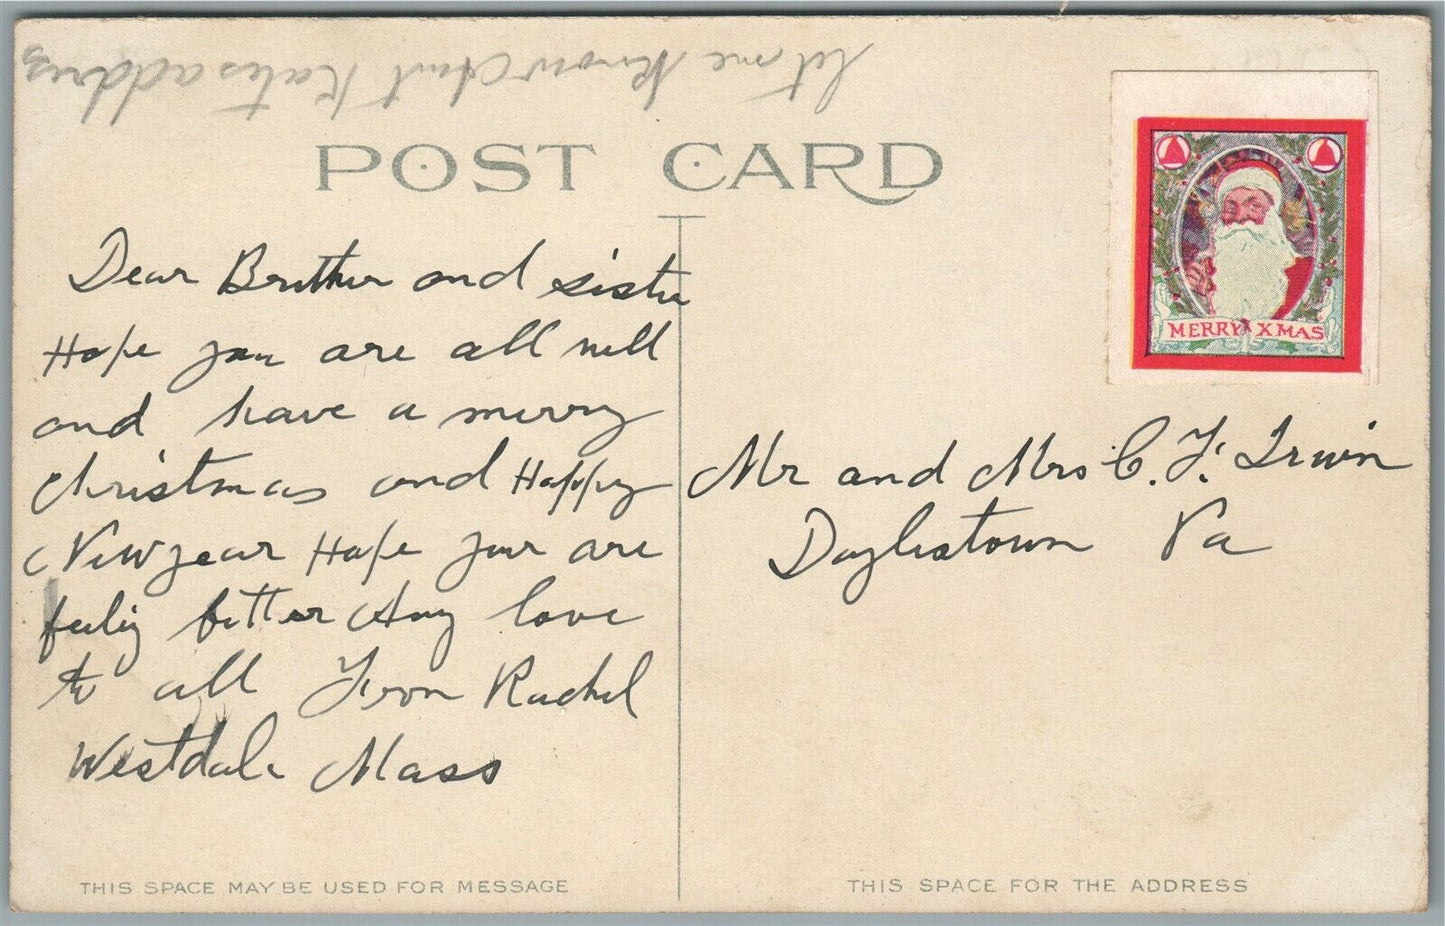 let me know Aunt Kates address
POST CARD
MERRY XMAS
Dear Brother and sister
Hope you are all well
and have a merry
Christmas and Happy
Newyear Hope your are
feelig better Any love
to all From Rachel
Westdale Mass
Mr and Mrs C. F. Irwin
Doylestown Pa
THIS SPACE MAY BE USED FOR MESSAGE
THIS SPACE FOR THE ADDRESS